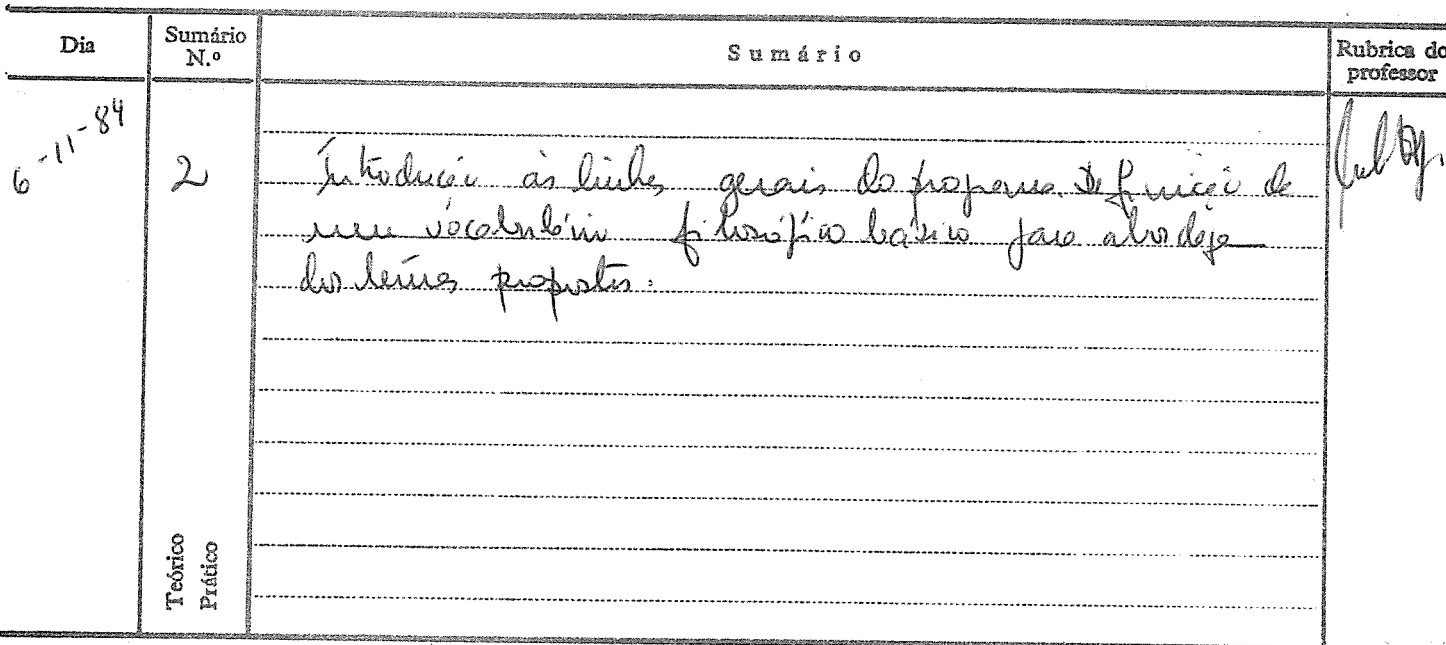 Dia
Sumário
N.º
Sumário
Rubrica do
professor
6-11-84
2
Introdução às linhas gerais do programa. Definição de
um vocabulário filosófico básico para abordagem
dos temas propostos.
Teórico
Prático